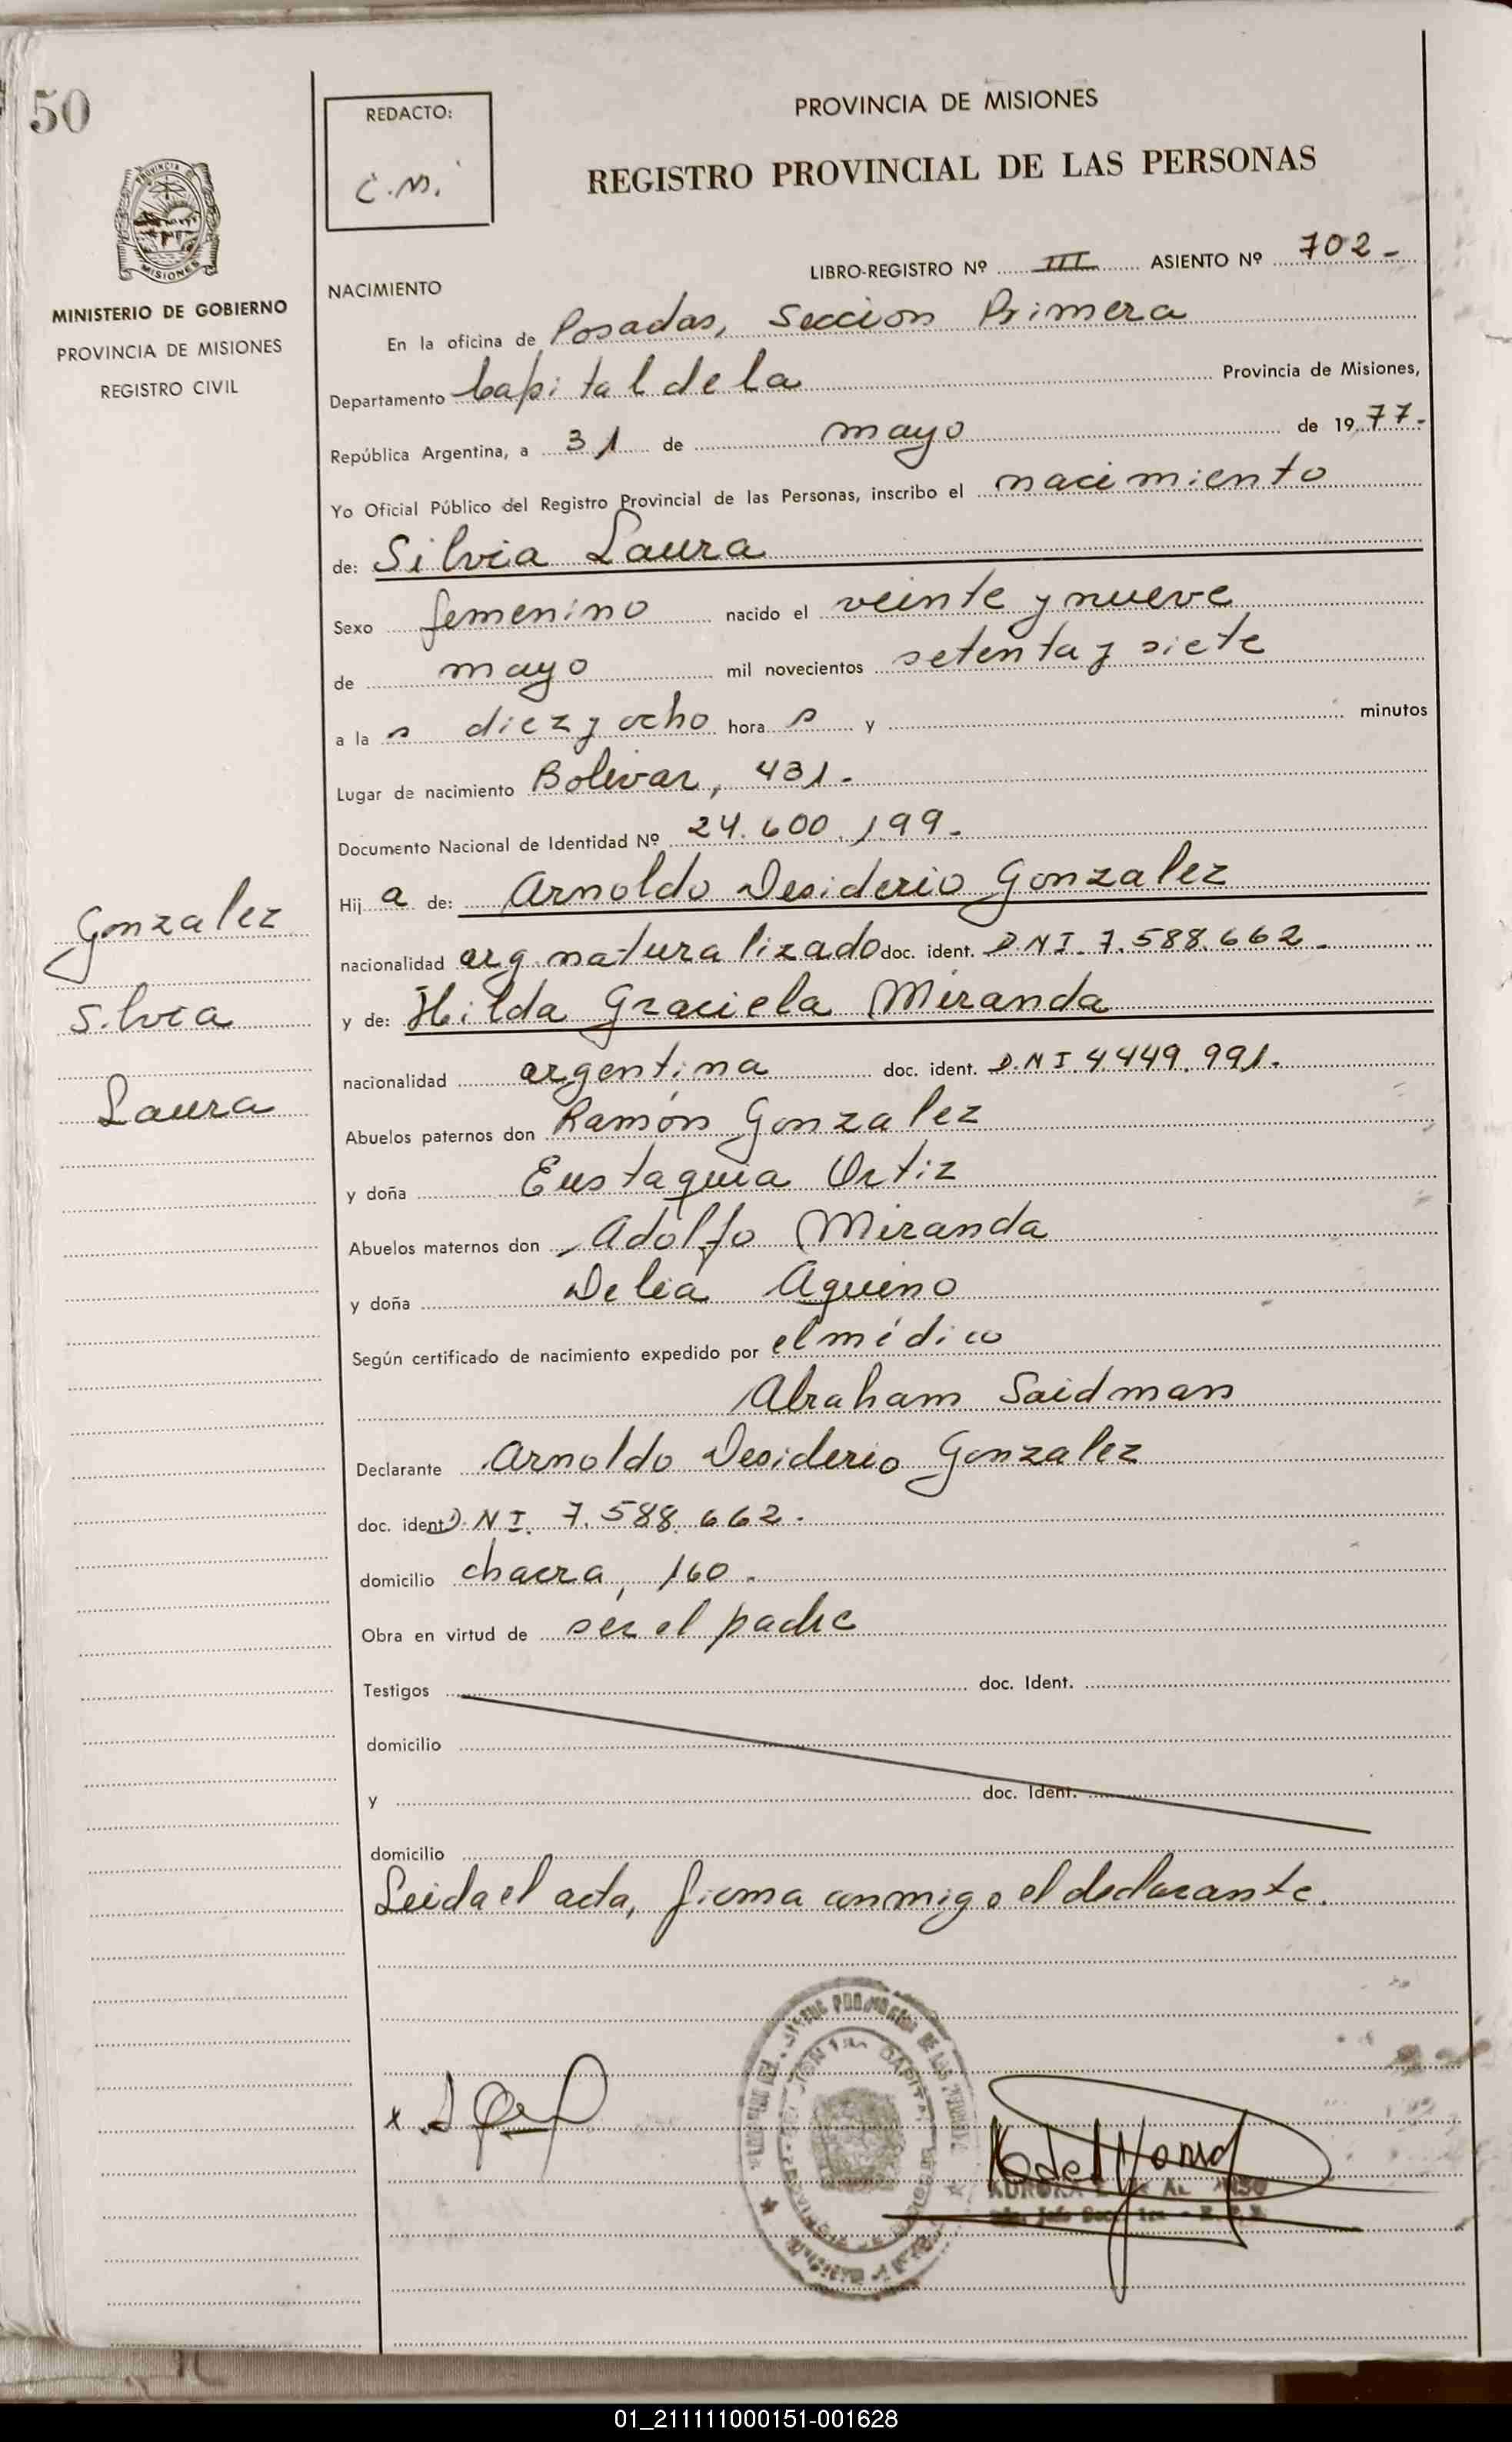 50
REDACTO:
C.M.
PROVINCIA DE MISIONES
REGISTRO PROVINCIAL DE LAS PERSONAS
PROVINCIA
MISIONES
MINISTERIO DE GOBIERNO
PROVINCIA DE MISIONES
REGISTRO CIVIL
LIBRO-REGISTRO Nº III ASIENTO Nº 702-
NACIMIENTO
En la oficina de Posadas, Seccion Primera
Departamento Capital de la Provincia de Misiones,
República Argentina, a 31 de mayo de 1977-
Yo Oficial Público del Registro Provincial de las Personas, inscribo el nacimiento
de: Silvia Laura
Sexo femenino nacido el veinte y nueve
de mayo mil novecientos setenta y siete
a la s diez y ocho hora s y minutos
Lugar de nacimiento Bolivar, 431-
Documento Nacional de Identidad Nº 24.600.199-
Hij a de: Arnoldo Desiderio Gonzalez
nacionalidad arg. naturalizado doc. ident. D.N.I. 7.588.662-
y de: Hilda Graciela Miranda
nacionalidad argentina doc. ident. D.N.I 4449.991-
Abuelos paternos don Ramón Gonzalez
y doña Eustaquia Ortiz
Abuelos maternos don Adolfo Miranda
y doña Delia Aquino
Según certificado de nacimiento expedido por el médico
Abraham Saidman
Declarante Arnoldo Desiderio Gonzalez
doc. ident D.N.I. 7.588.662-
domicilio chacra, 160-
Obra en virtud de ser el padre
Testigos doc. Ident.
domicilio
y doc. Ident.
domicilio
Leida el acta, firma conmigo el declarante.
Gonzalez
Silvia
Laura
01_211111000151-001628